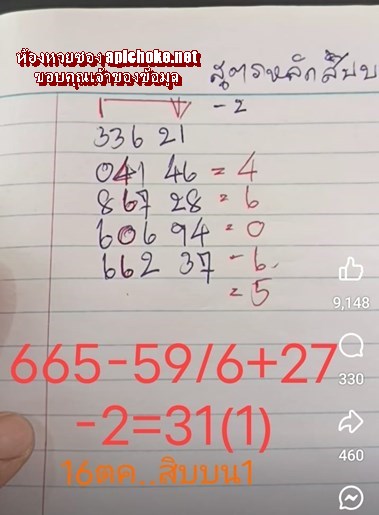 ห้องหวยซองapichoke.net
ขอบคุณเจ้าของข้อมูล
สูตรหลักสิบบน
-2
336 21
041 46 = 4
867 28 = 6
606 94 = 0
662 37 - 6
= 5
9,148
330
460
665-59/6+27
-2=31(1)
16ตค..สิบบน1